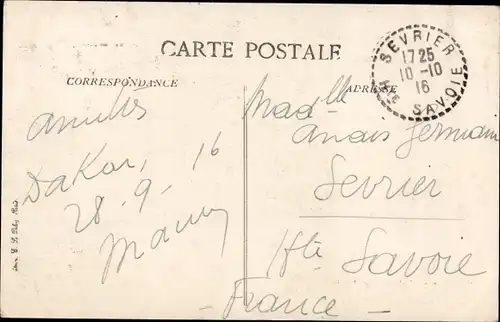 CARTE POSTALE
CORRESPONDANCE
ADRESSE
SEVRIER
1725
10-10
16
Hte SAVOIE
Amitiés
Dakar,
28-9-16
Madlle
Anais Germain
Sevrier
Hte Savoie
-France-